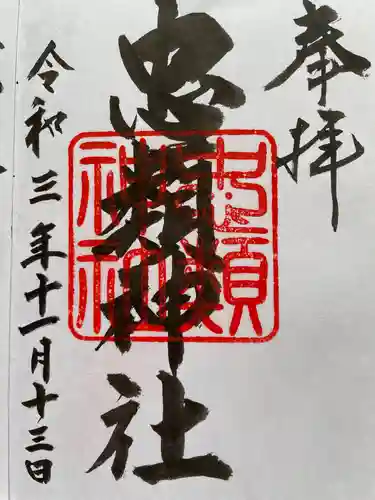 奉拝
忠類神社
令和三年十一月十三日